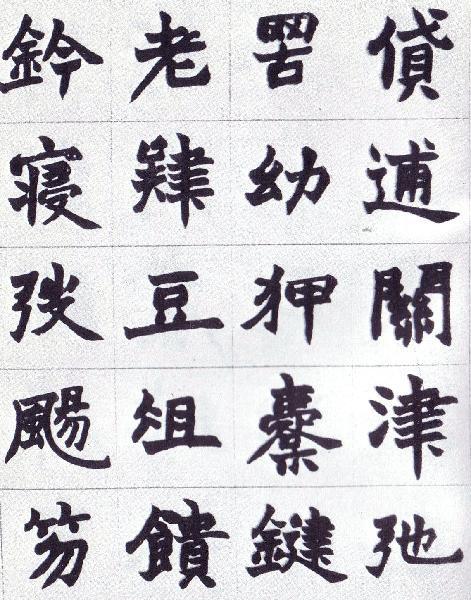 貸逋關津弛
罟幼狎櫜鍵
老肄豆俎饋
鈐寢弢颺笏